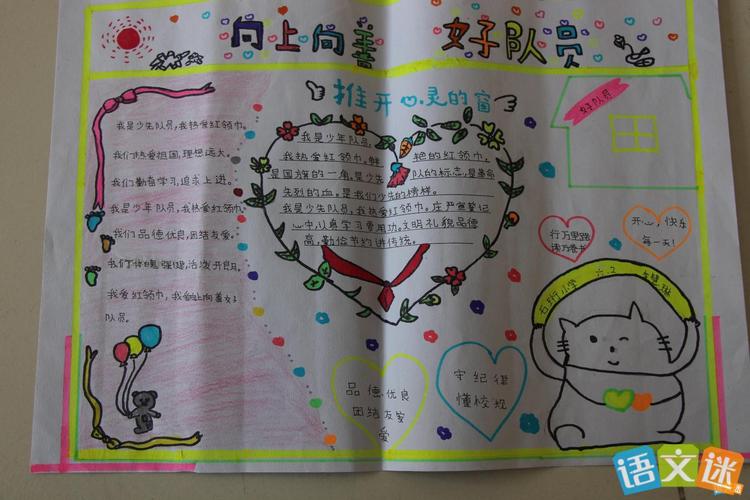 向上向善 好队员
推开心灵的窗
我是少先队员,我热爱红领巾。
我们热爱祖国,理想远大。
我们勤奋学习,追求上进。
我是少年队员,我热爱红领巾。
我们品德优良,团结友爱。
我们体魄强健,活泼开朗。
我爱红领巾,我争做向上向善好
队员。
我是少年队员,
我热爱红领巾。鲜艳的红领巾,
是国旗的一角。是少先队的标志,是革命
先烈的血。是我们少先的榜样。
我是少先队员,我热爱红领巾。庄严登记
心中,从身学习费用功。文明礼貌品德
高,勤俭节约进传统。
好队员
行万里路
读万卷书
开心,快乐
每一天!
石桥小学 六.2
品德优良
团结友家
爱
守纪律
懂校规
语文迷